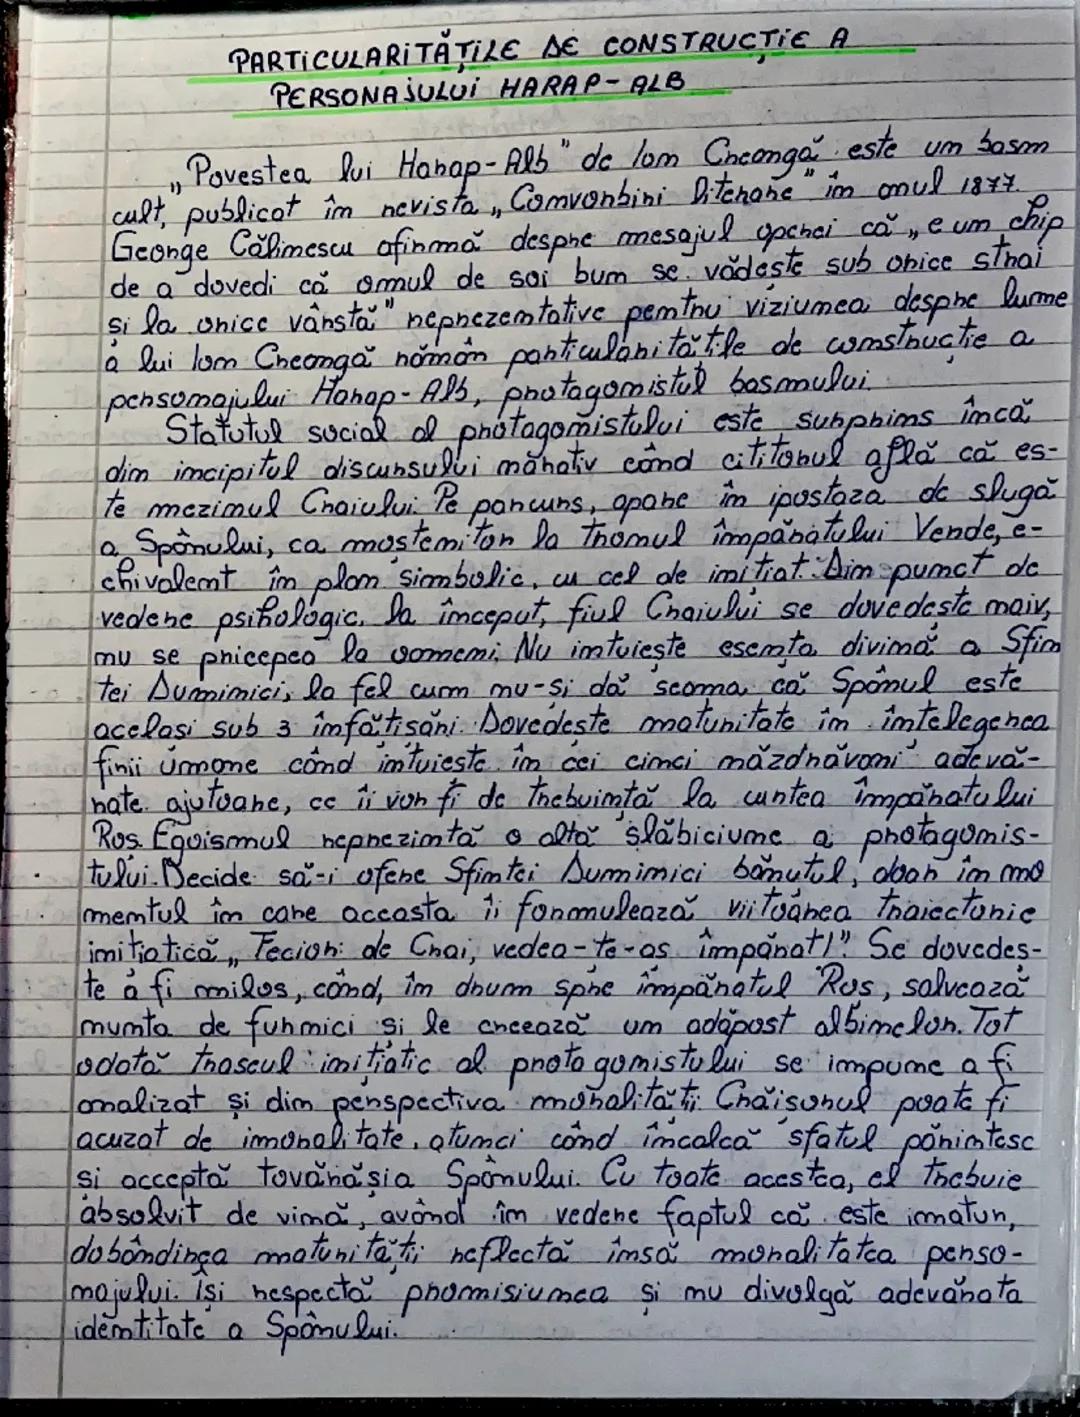 PARTICULARITĂȚILE DE CONSTRUCȚIE A
PERSONAJULUI HARAP-ALB
„Povestea lui Harap-Alb" de Ion Creangă este un basm
cult, publicat în revista „Convorbiri literare" în anul 1877.
George Călinescu afirmă despre mesajul operei că „e un chip
de a dovedi că omul de soi bun se vădește sub orice strai
și la orice vârstă" reprezentative pentru viziunea despre lume
a lui Ion Creangă rămân particularitățile de construcție a
personajului Harap-Alb, protagonistul basmului.
Statutul social al protagonistului este surprins încă
din incipitul discursului narativ când cititorul află că es-
te mezinul Craiului. Pe parcurs, apare în ipostaza de slugă
a Spânului, ca moștenitor la tronul împăratului Verde, e-
chivalent în plan simbolic, cu cel de inițiat. Din punct de
vedere psihologic, la început, fiul Craiului se dovedește naiv,
nu se pricepea la oameni; Nu intuiește esența divină a Sfin
tei Duminici, la fel cum nu-și dă seama că Spânul este
același sub 3 înfățișări. Dovedește maturitate în înțelegerea
firii umane când intuiește în cei cinci măzdrăvani adevă-
rate ajutoare, ce îi vor fi de trebuință la curtea împăratului
Roș. Egoismul reprezintă o altă slăbiciune a protagonis-
tului. Decide să-i ofere Sfintei Duminici bănuțul, doar în mo
mentul în care aceasta îi formulează viitoarea traiectorie
inițiatică „Fecior: de Crai, vedea-te-aș împărat!" Se dovedeș-
te a fi milos, când, în drum spre împăratul Roș, salvează
nunta de furnici și le creează un adăpost albinelor. Tot
odată traseul inițiatic al protagonistului se impune a fi
analizat și din perspectiva moralității. Crăișorul poate fi
acuzat de imoralitate, atunci când încalcă sfatul părintesc
și acceptă tovărășia Spânului. Cu toate acestea, el trebuie
absolvit de vină, având în vedere faptul că este imatur,
dobândirea maturității reflectă însă moralitatea perso-
najului. Își respectă promisiunea și nu divulgă adevărata
identitate a Spânului.